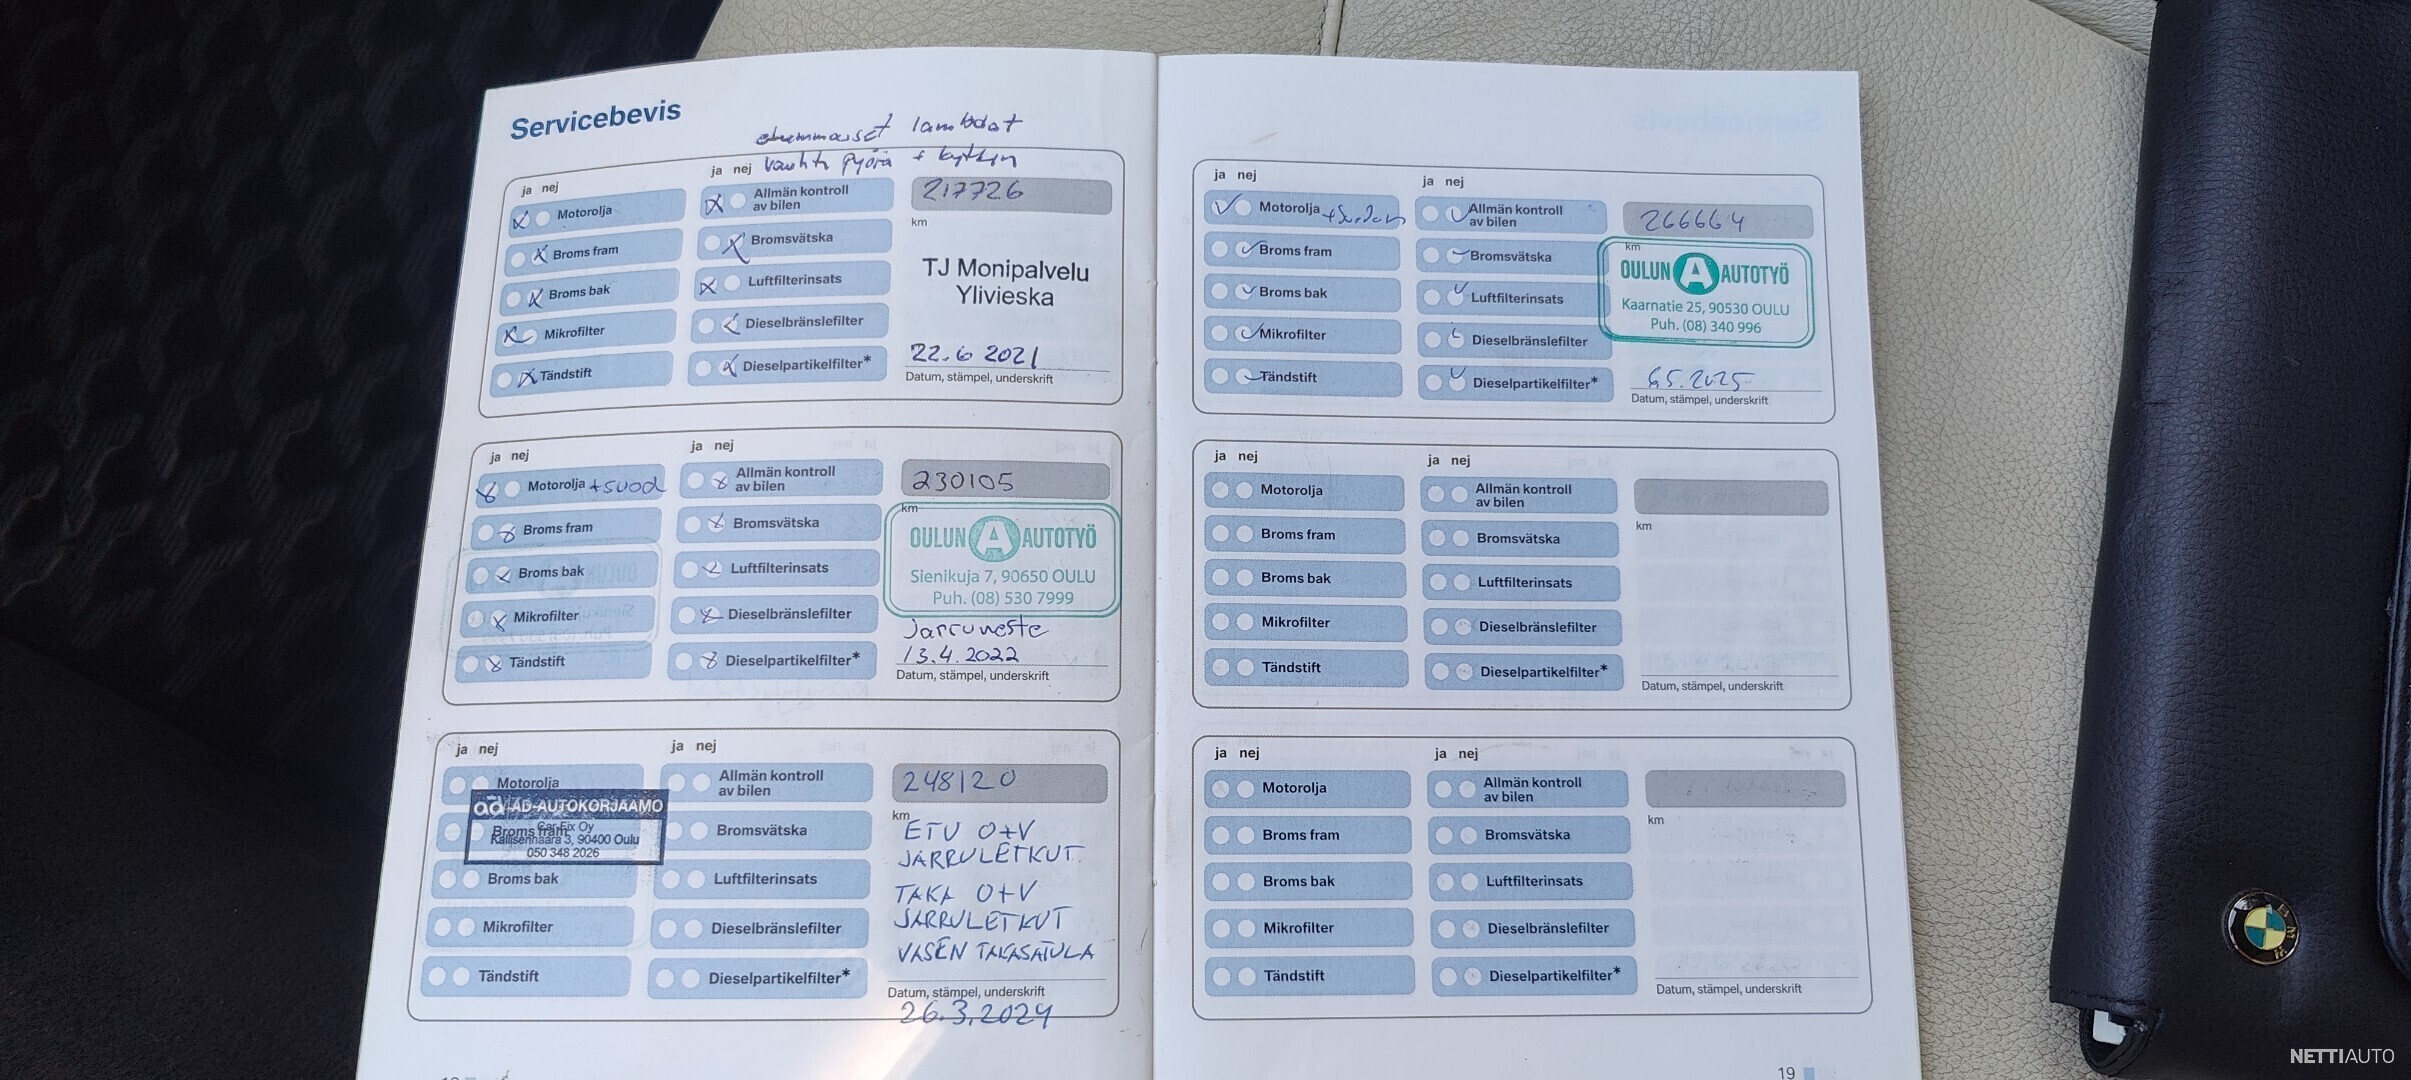 Servicebevis
lambdat
vauhti pyörä + kytkin
ja nej
ja nej
Motorolja
Allmän kontroll
av bilen
217726
km
Broms fram
Bromsvätska
Broms bak
Luftfilterinsats
TJ Monipalvelu
Ylivieska
Mikrofilter
Dieselbränslefilter
Tändstift
Dieselpartikelfilter*
22.6 2021
Datum, stämpel, underskrift
ja nej
ja nej
Motorolja +suod
Allmän kontroll
av bilen
230105
km
Broms fram
Bromsvätska
OULUN A AUTOTYÖ
Sienikuja 7, 90650 OULU
Puh. (08) 530 7999
Broms bak
Luftfilterinsats
Mikrofilter
Dieselbränslefilter
jarruneste
Tändstift
Dieselpartikelfilter*
13.4.2022
Datum, stämpel, underskrift
ja nej
ja nej
Motorolja
Allmän kontroll
av bilen
248120
km
ad AD-AUTOKORJAAMO
Car-Fix Oy
Kallisenhaara 3, 90400 Oulu
050 348 2026
Broms fram
Bromsvätska
ETU O+V
JARRULETKUT
Broms bak
Luftfilterinsats
TAKA O+V
JARRULETKUT
Mikrofilter
Dieselbränslefilter
VASEN TAKASATULA
Tändstift
Dieselpartikelfilter*
Datum, stämpel, underskrift
26.3.2024
ja nej
ja nej
Motorolja
Allmän kontroll
av bilen
266664
km
Broms fram
Bromsvätska
OULUN A AUTOTYÖ
Kaarnatie 25, 90530 OULU
Puh. (08) 340 996
Broms bak
Luftfilterinsats
Mikrofilter
Dieselbränslefilter
Tändstift
Dieselpartikelfilter*
6.5.2025
Datum, stämpel, underskrift
ja nej
ja nej
Motorolja
Allmän kontroll
av bilen
km
Broms fram
Bromsvätska
Broms bak
Luftfilterinsats
Mikrofilter
Dieselbränslefilter
Tändstift
Dieselpartikelfilter*
Datum, stämpel, underskrift
ja nej
ja nej
Motorolja
Allmän kontroll
av bilen
km
Broms fram
Bromsvätska
Broms bak
Luftfilterinsats
Mikrofilter
Dieselbränslefilter
Tändstift
Dieselpartikelfilter*
Datum, stämpel, underskrift
19
BMW
NETTIAUTO